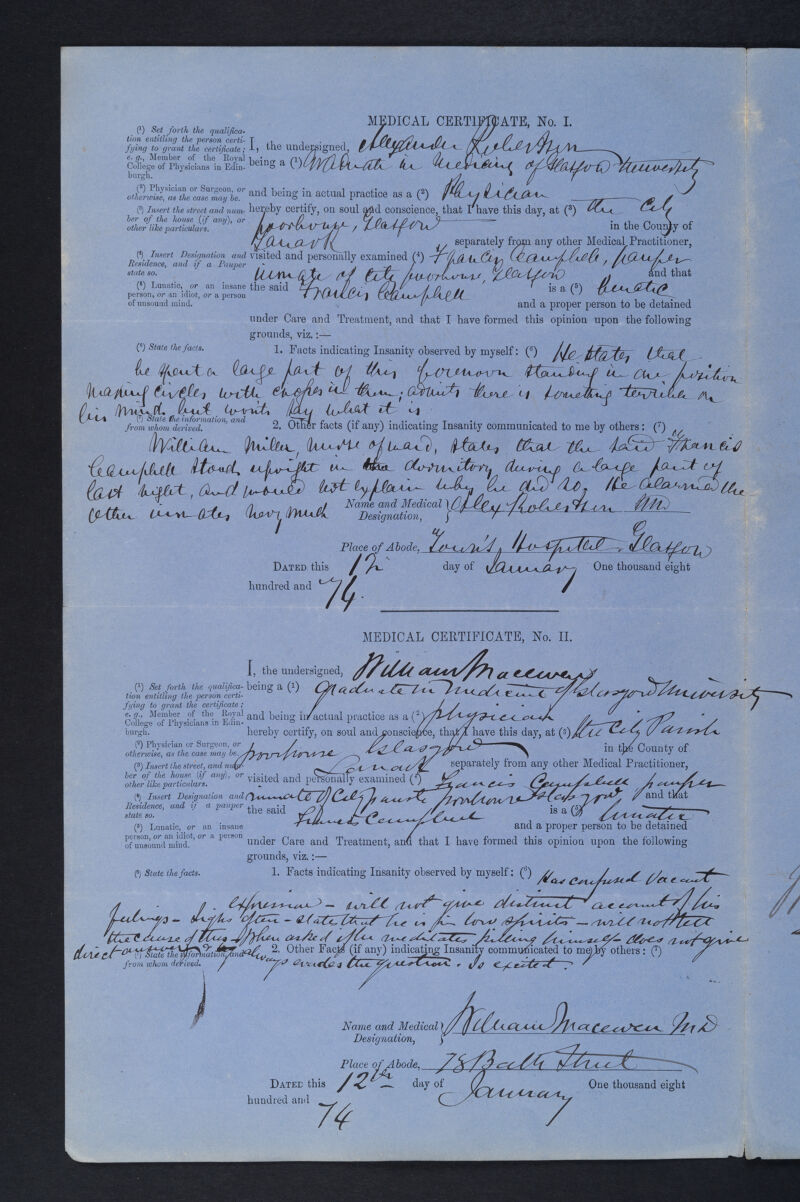 MEDICAL CERTIFICATE, No. I.
(¹) Set forth the qualifica-
tion entitling the person certi-
fying to grant the certificate;
e.g., Member of the Royal
College of Physicians in Edin-
burgh.
I, the undersigned, Alexander Robertson
being a (¹) Graduate in Medicine of Glasgow University
(²) Physician or Surgeon, or
otherwise, as the case may be.
and being in actual practice as a (²) Physician
(³) Insert the street and num-
ber of the house (if any), or
other like particulars.
hereby certify, on soul and conscience, that I have this day, at (³) the City
poorhouse, Glasgow in the County of
Lanark separately from any other Medical Practitioner,
(⁴) Insert Designation and
Residence, and if a Pauper
state so.
visited and personally examined (⁴) Francis Campbell, pauper
inmate of City poorhouse, Glasgow and that
(⁵) Lunatic, or an insane
person, or an idiot, or a person
of unsound mind.
the said Francis Campbell is a (⁵) lunatic
and a proper person to be detained
under Care and Treatment, and that I have formed this opinion upon the following
grounds, viz.:—
(⁶) State the facts.
1. Facts indicating Insanity observed by myself: (⁶) He states that
he spent a large part of this forenoon standing in one position
making circles with crosses in them; admits there is something terrible on
his mind, but wont say what it is
(⁷) State the information, and
from whom derived.
2. Other facts (if any) indicating Insanity communicated to me by others: (⁷)
William Miller, nurse of ward, states that the said Francis
Campbell stood upright in the dormitory during a large part of
last night, and would not explain why he did so. He alarmed the
other inmates very much
Name and Medical Designation, Alex Robertson MD
Place of Abode, Town's Hospital, Glasgow
DATED this 12 day of January One thousand eight
hundred and 74.
MEDICAL CERTIFICATE, No. II.
I, the undersigned, William Macewen
(¹) Set forth the qualifica-
tion entitling the person certi-
fying to grant the certificate;
e.g., Member of the Royal
College of Physicians in Edin-
burgh.
being a (¹) graduate in medicine of Glasgow University
and being in actual practice as a (²) physician
(²) Physician or Surgeon, or
otherwise, as the case may be.
hereby certify, on soul and conscience, that I have this day, at (³) the City Parish
(³) Insert the street, and num-
ber of the house (if any), or
other like particulars.
poorhouse Glasgow in the County of
Lanark separately from any other Medical Practitioner,
visited and personally examined (⁴) Francis Campbell pauper
(⁴) Insert Designation and
Residence, and if a pauper
state so.
inmate of City parish poorhouse Glasgow and that
the said Francis Campbell is a (⁵) lunatic
(⁵) Lunatic, or an insane
person, or an idiot, or a person
of unsound mind.
and a proper person to be detained
under Care and Treatment, and that I have formed this opinion upon the following
grounds, viz.:—
(⁶) State the facts.
1. Facts indicating Insanity observed by myself: (⁶) Has confused vacant
expression - will not give distinct account of his
feelings - sighs often - states that he is in low spirits - will not tell
the cause of this - When asked if he meditates killing himself - does not give
direct answer always evades the question. Is excited.
(⁷) State the information, and
from whom derived.
2. Other Facts (if any) indicating Insanity communicated to me by others: (⁷)
Name and Medical Designation, William Macewen MD
Place of Abode, 78 Bath Street
DATED this 12th day of January One thousand eight
hundred and 74